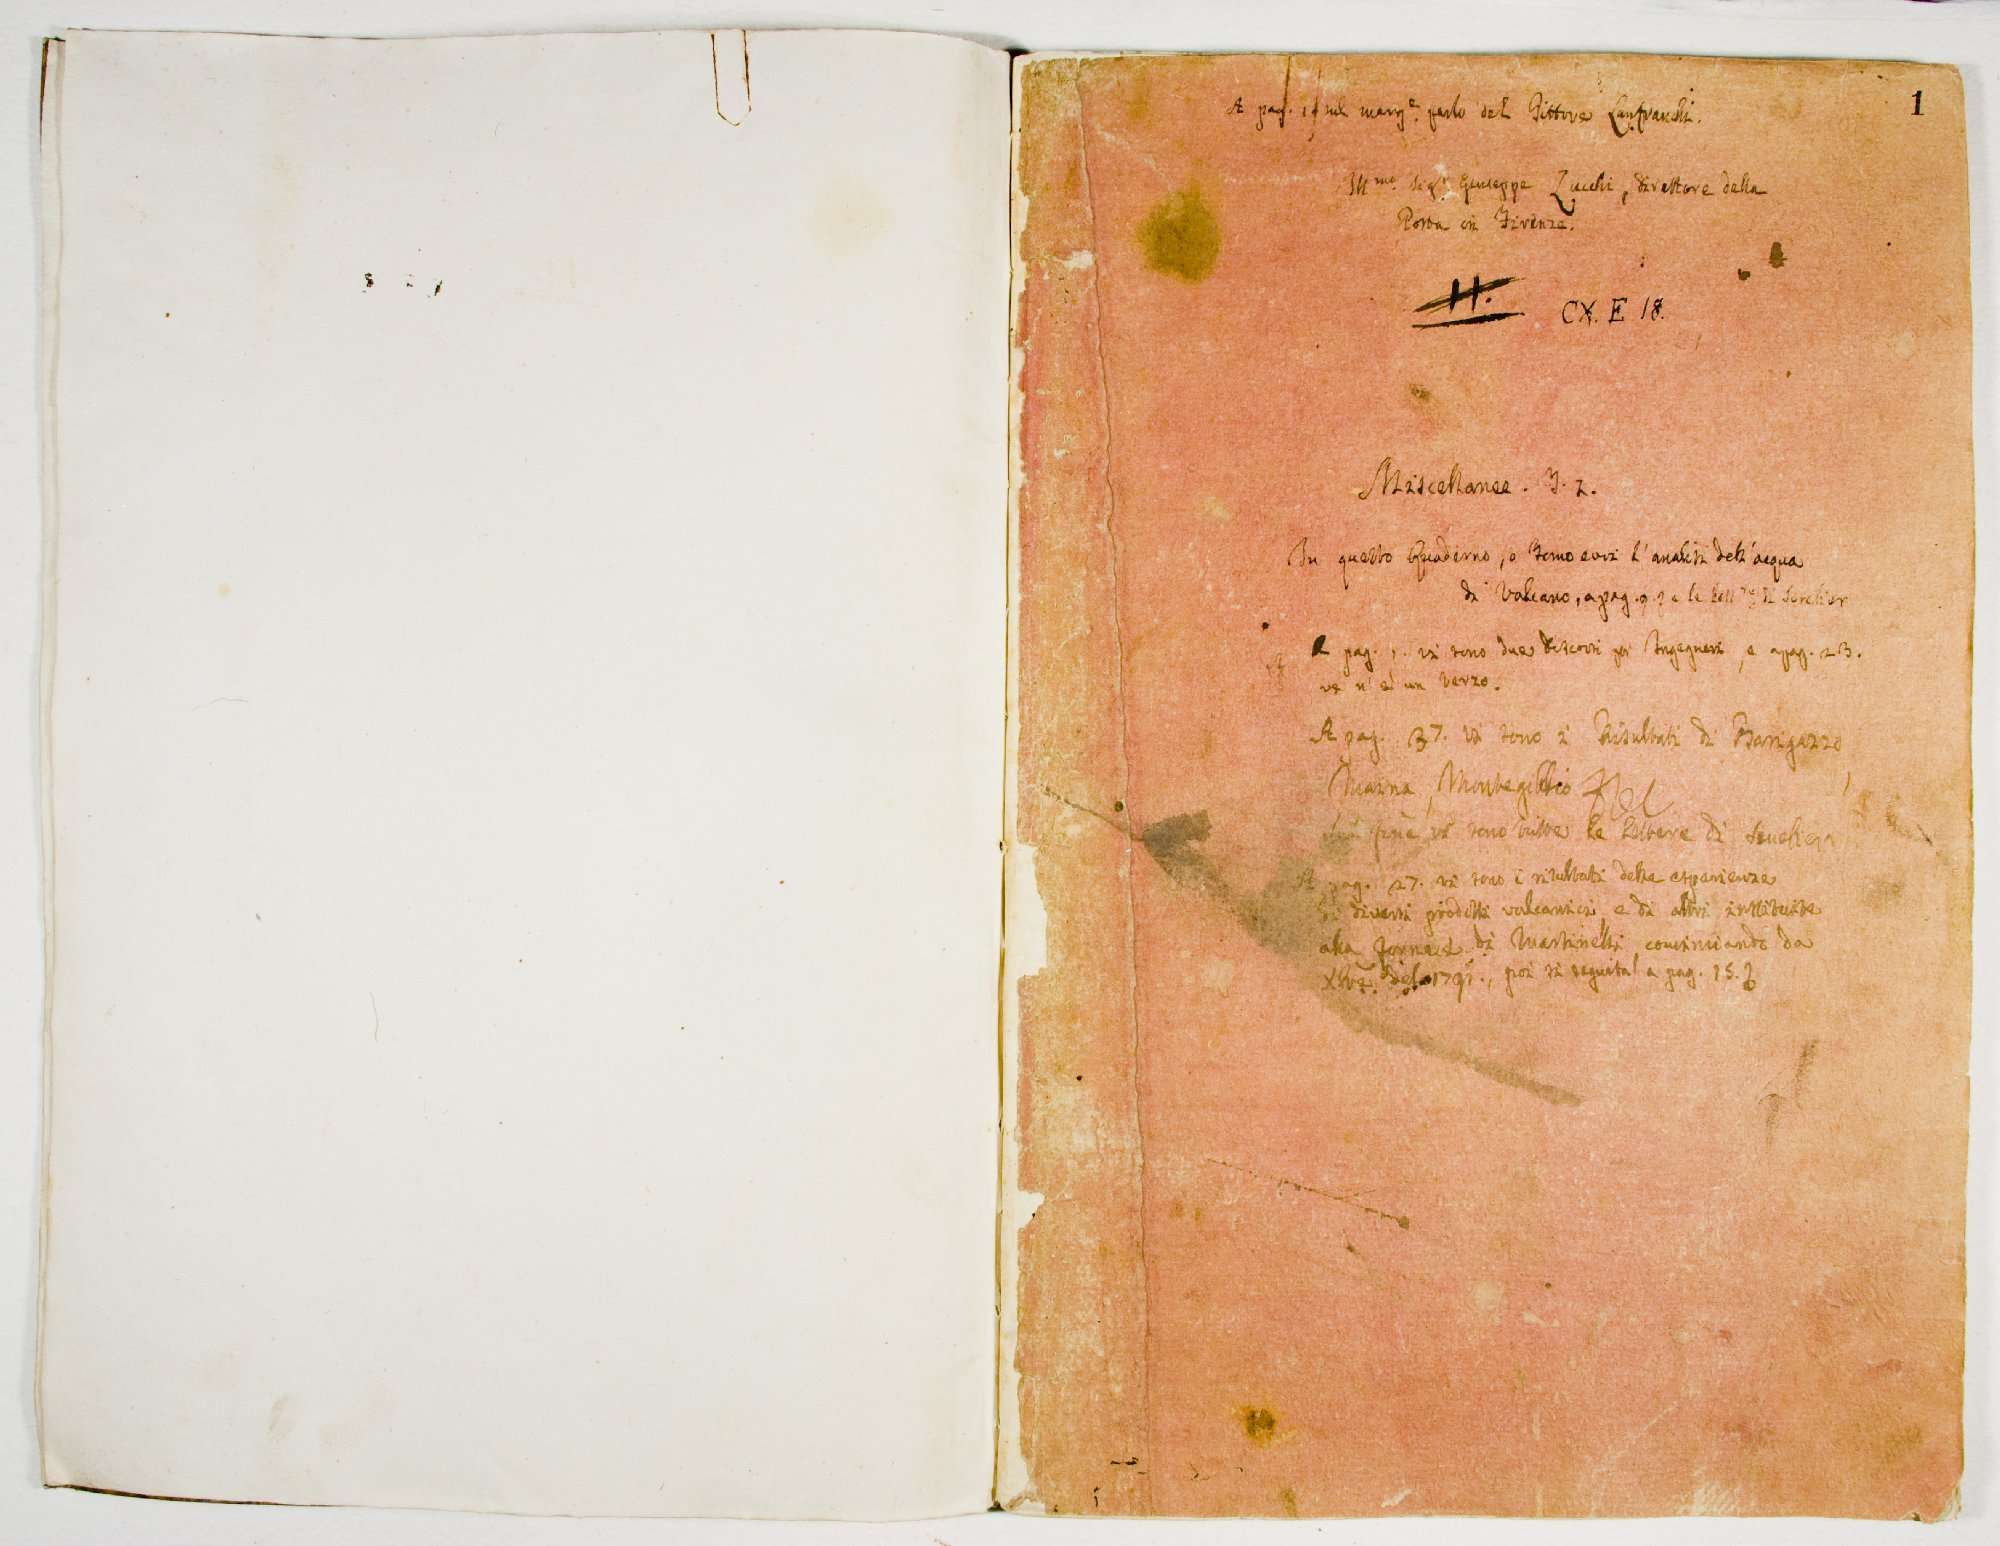 1
A pag. 14 sul marg.e parlo del Pittore Lanfranchi.
Ill.mo Sig.r Giuseppe Zucchi, direttore della
Posta in Firenze.
11. CX. E 18.
Miscellanee. T. 2.
In questo Quaderno, o Tomo evvi l'analisi dell'acqua
di Vulcano, a pag. e le di
A pag. vi sono due discorsi per Ingegneri, e a pag. 23.
ve n'è un terzo.
A pag. 37. vi sono i Risultati di Barigazzo
Maina, Montegibbio
fine vi sono tutte le lettere di
A pag. 27. vi sono i risultati delle esperienze
di diversi prodotti vulcanici, e di altri instituite
alla fornace di Martinelli cominciando da
Xbre del 1791., poi si seguita a pag. 15.